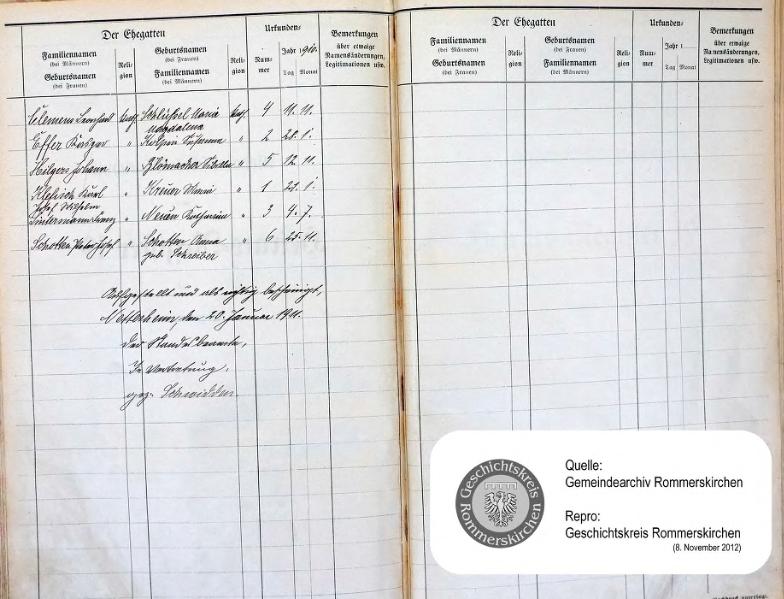 Der Ehegatten
Familiennamen
(bei Männern)
Geburtsnamen
(bei Frauen)
Reli-
gion
Geburtsnamen
(bei Frauen)
Familiennamen
(bei Männern)
Reli-
gion
Urkunden-
Num-
mer
Jahr 1910
Tag Monat
Bemerkungen
über etwaige
Namensänderungen,
Legitimationen usw.
Clemens Leonhard kath. Schlüssel Maria kath. 4 11. 11.
Magdalena
Effer Kaspar " Susanna " 2 28. 1.
Hilgers Johann " " 5 12. 11.
Karl " Kreuer Maria " 1 28. 1.
Josef Wilhelm
" Neuen Katharina " 3 4. 7.
Schotten Peter Josef " Schotten Anna " 6 25. 11.
geb. Schreiber
Aufgestellt und als richtig bescheinigt,
Nettesheim, den 20. Januar 1911.
Der Standesbeamte,
In Vertretung,
gez. Schmidden.
Der Ehegatten
Familiennamen
(bei Männern)
Geburtsnamen
(bei Frauen)
Reli-
gion
Geburtsnamen
(bei Frauen)
Familiennamen
(bei Männern)
Reli-
gion
Urkunden-
Num-
mer
Jahr 1
Tag Monat
Bemerkungen
über etwaige
Namensänderungen,
Legitimationen usw.
Geschichtskreis
Rommerskirchen
Quelle:
Gemeindearchiv Rommerskirchen
Repro:
Geschichtskreis Rommerskirchen
(8. November 2012)